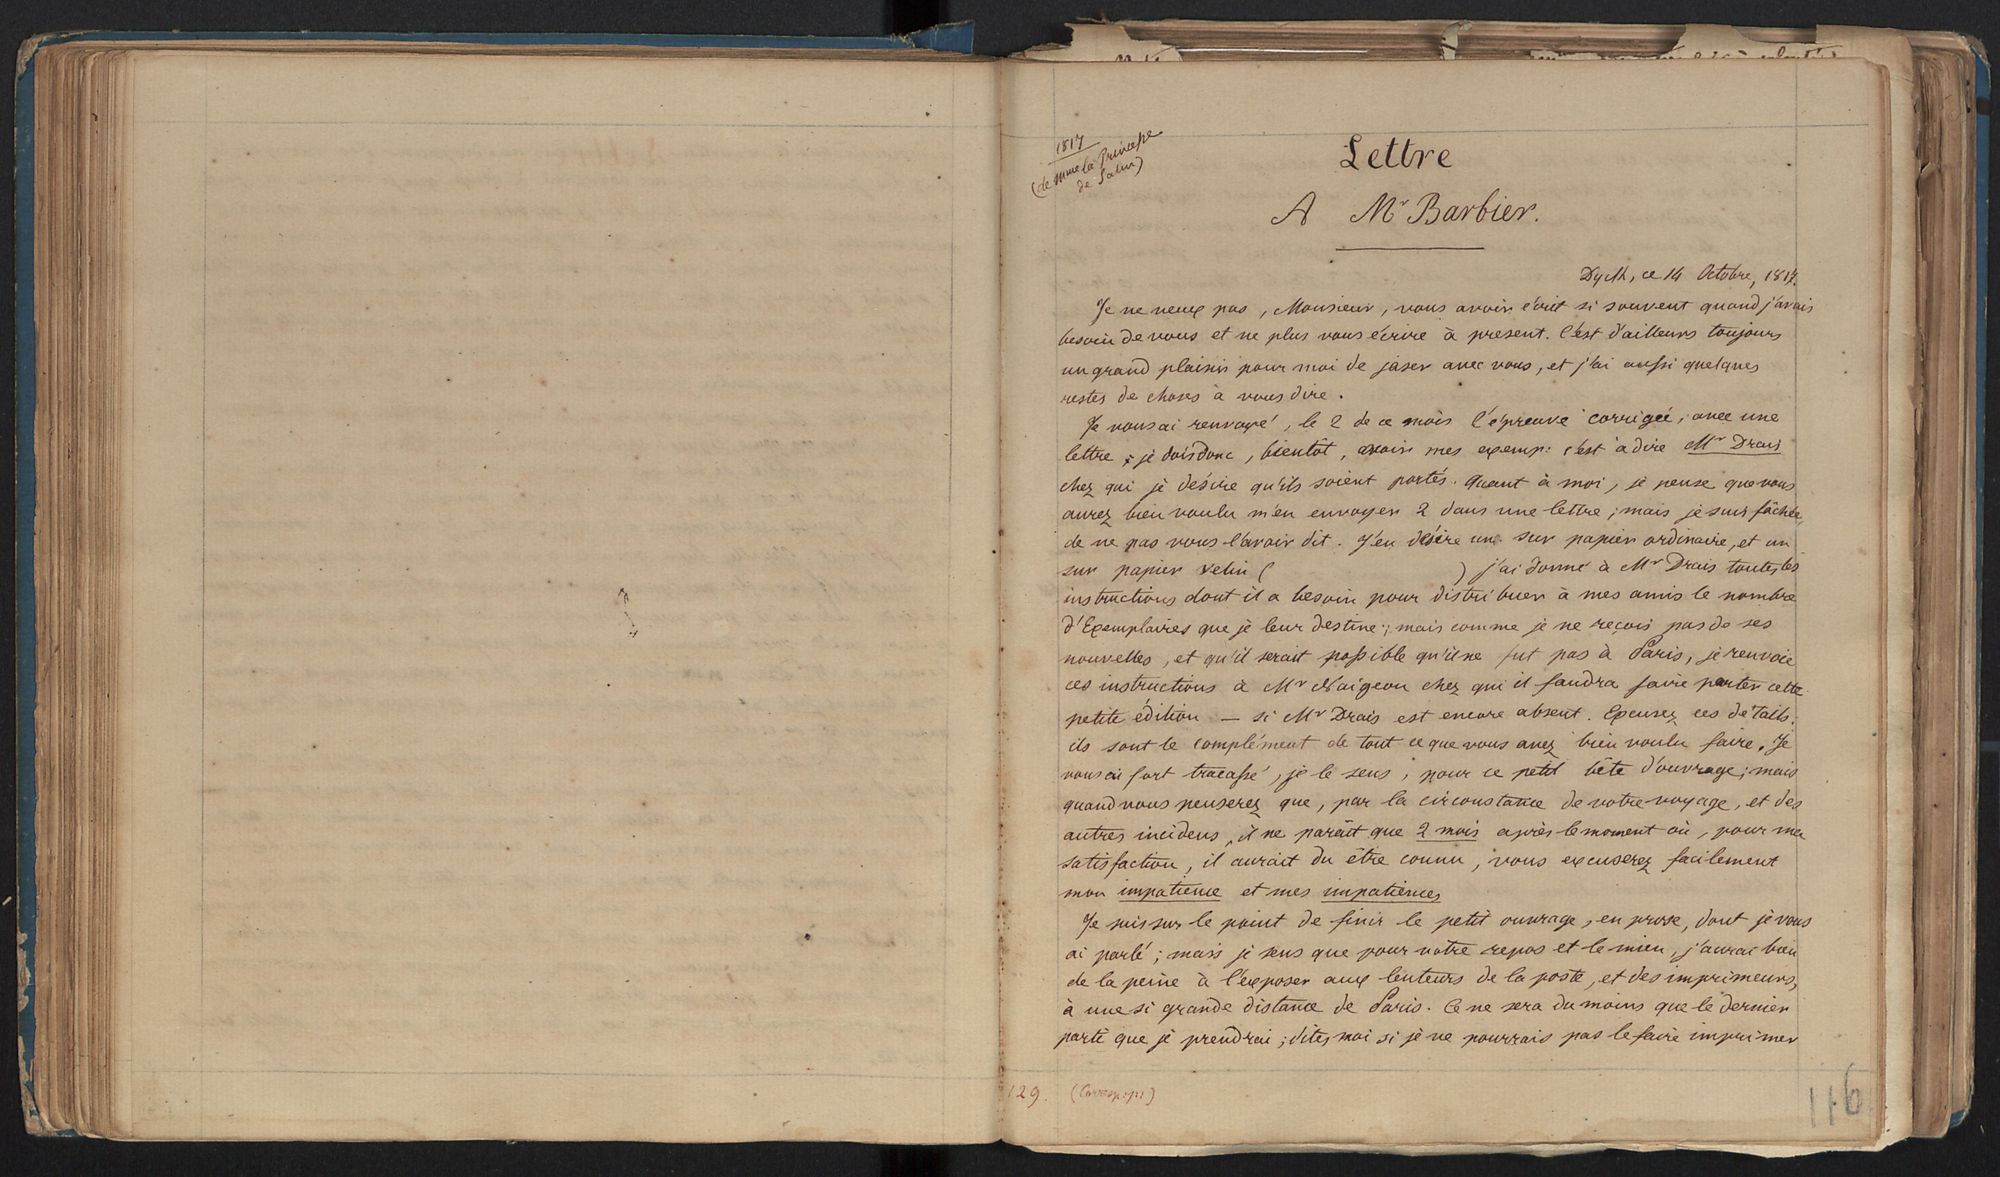 1817
(de Mme la Princesse
de Salm)
Lettre
A Mr Barbier.
Dyck, ce 14 Octobre, 1817.
Je ne veux pas, Monsieur, vous avoir écrit si souvent quand j'avais
besoin de vous et ne plus vous écrire à present. C'est d'ailleurs toujours
un grand plaisir pour moi de jaser avec vous, et j'ai aussi quelques
restes de choses à vous dire.
Je vous ai renvoyé, le 2 de ce mois l'épreuve corrigée, avec une
lettre ; je dois donc, bientôt, avoir mes exemp: c'est à dire Mr Drais
chez qui je désire qu'ils soient portés. Quant à moi, je pense que vous
aurez bien voulu m'en envoyer 2 dans une lettre ; mais je suis fâchée,
de ne pas vous l'avoir dit. J'en désire un sur papier ordinaire, et un
sur papier velin ( ) j'ai donné à Mr Drais toutes les
instructions dont il a besoin pour distribuer à mes amis le nombre
d'Exemplaires que je leur destine ; mais comme je ne reçois pas de ses
nouvelles, et qu'il serait possible qu'il ne fut pas à Paris, je renvoie
ces instructions à Mr Naigeon chez qui il faudra faire porter cette
petite édition — si Mr Drais est encore absent. Excusez ces détails.
ils sont le complément de tout ce que vous avez bien voulu faire. Je
vous ai fort tracassé, je le sens, pour ce petit bête d'ouvrage ; mais
quand vous penserez que, par la circonstance de votre voyage, et des
autres incidens, il ne paraît que 2 mois après le moment où, pour ma
satisfaction, il aurait du être connu, vous excuserez facilement
mon impatience et mes impatiences
Je suis sur le point de finir le petit ouvrage, en prose, dont je vous
ai parlé ; mais je sens que pour votre repos et le mien, j'aurai bien
de la peine à l'exposer aux lenteurs de la poste, et des imprimeurs,
à une si grande distance de Paris. Ce ne sera du moins que le dernier
parti que je prendrai ; dites moi si je ne pourrais pas le faire imprimer
129.
116